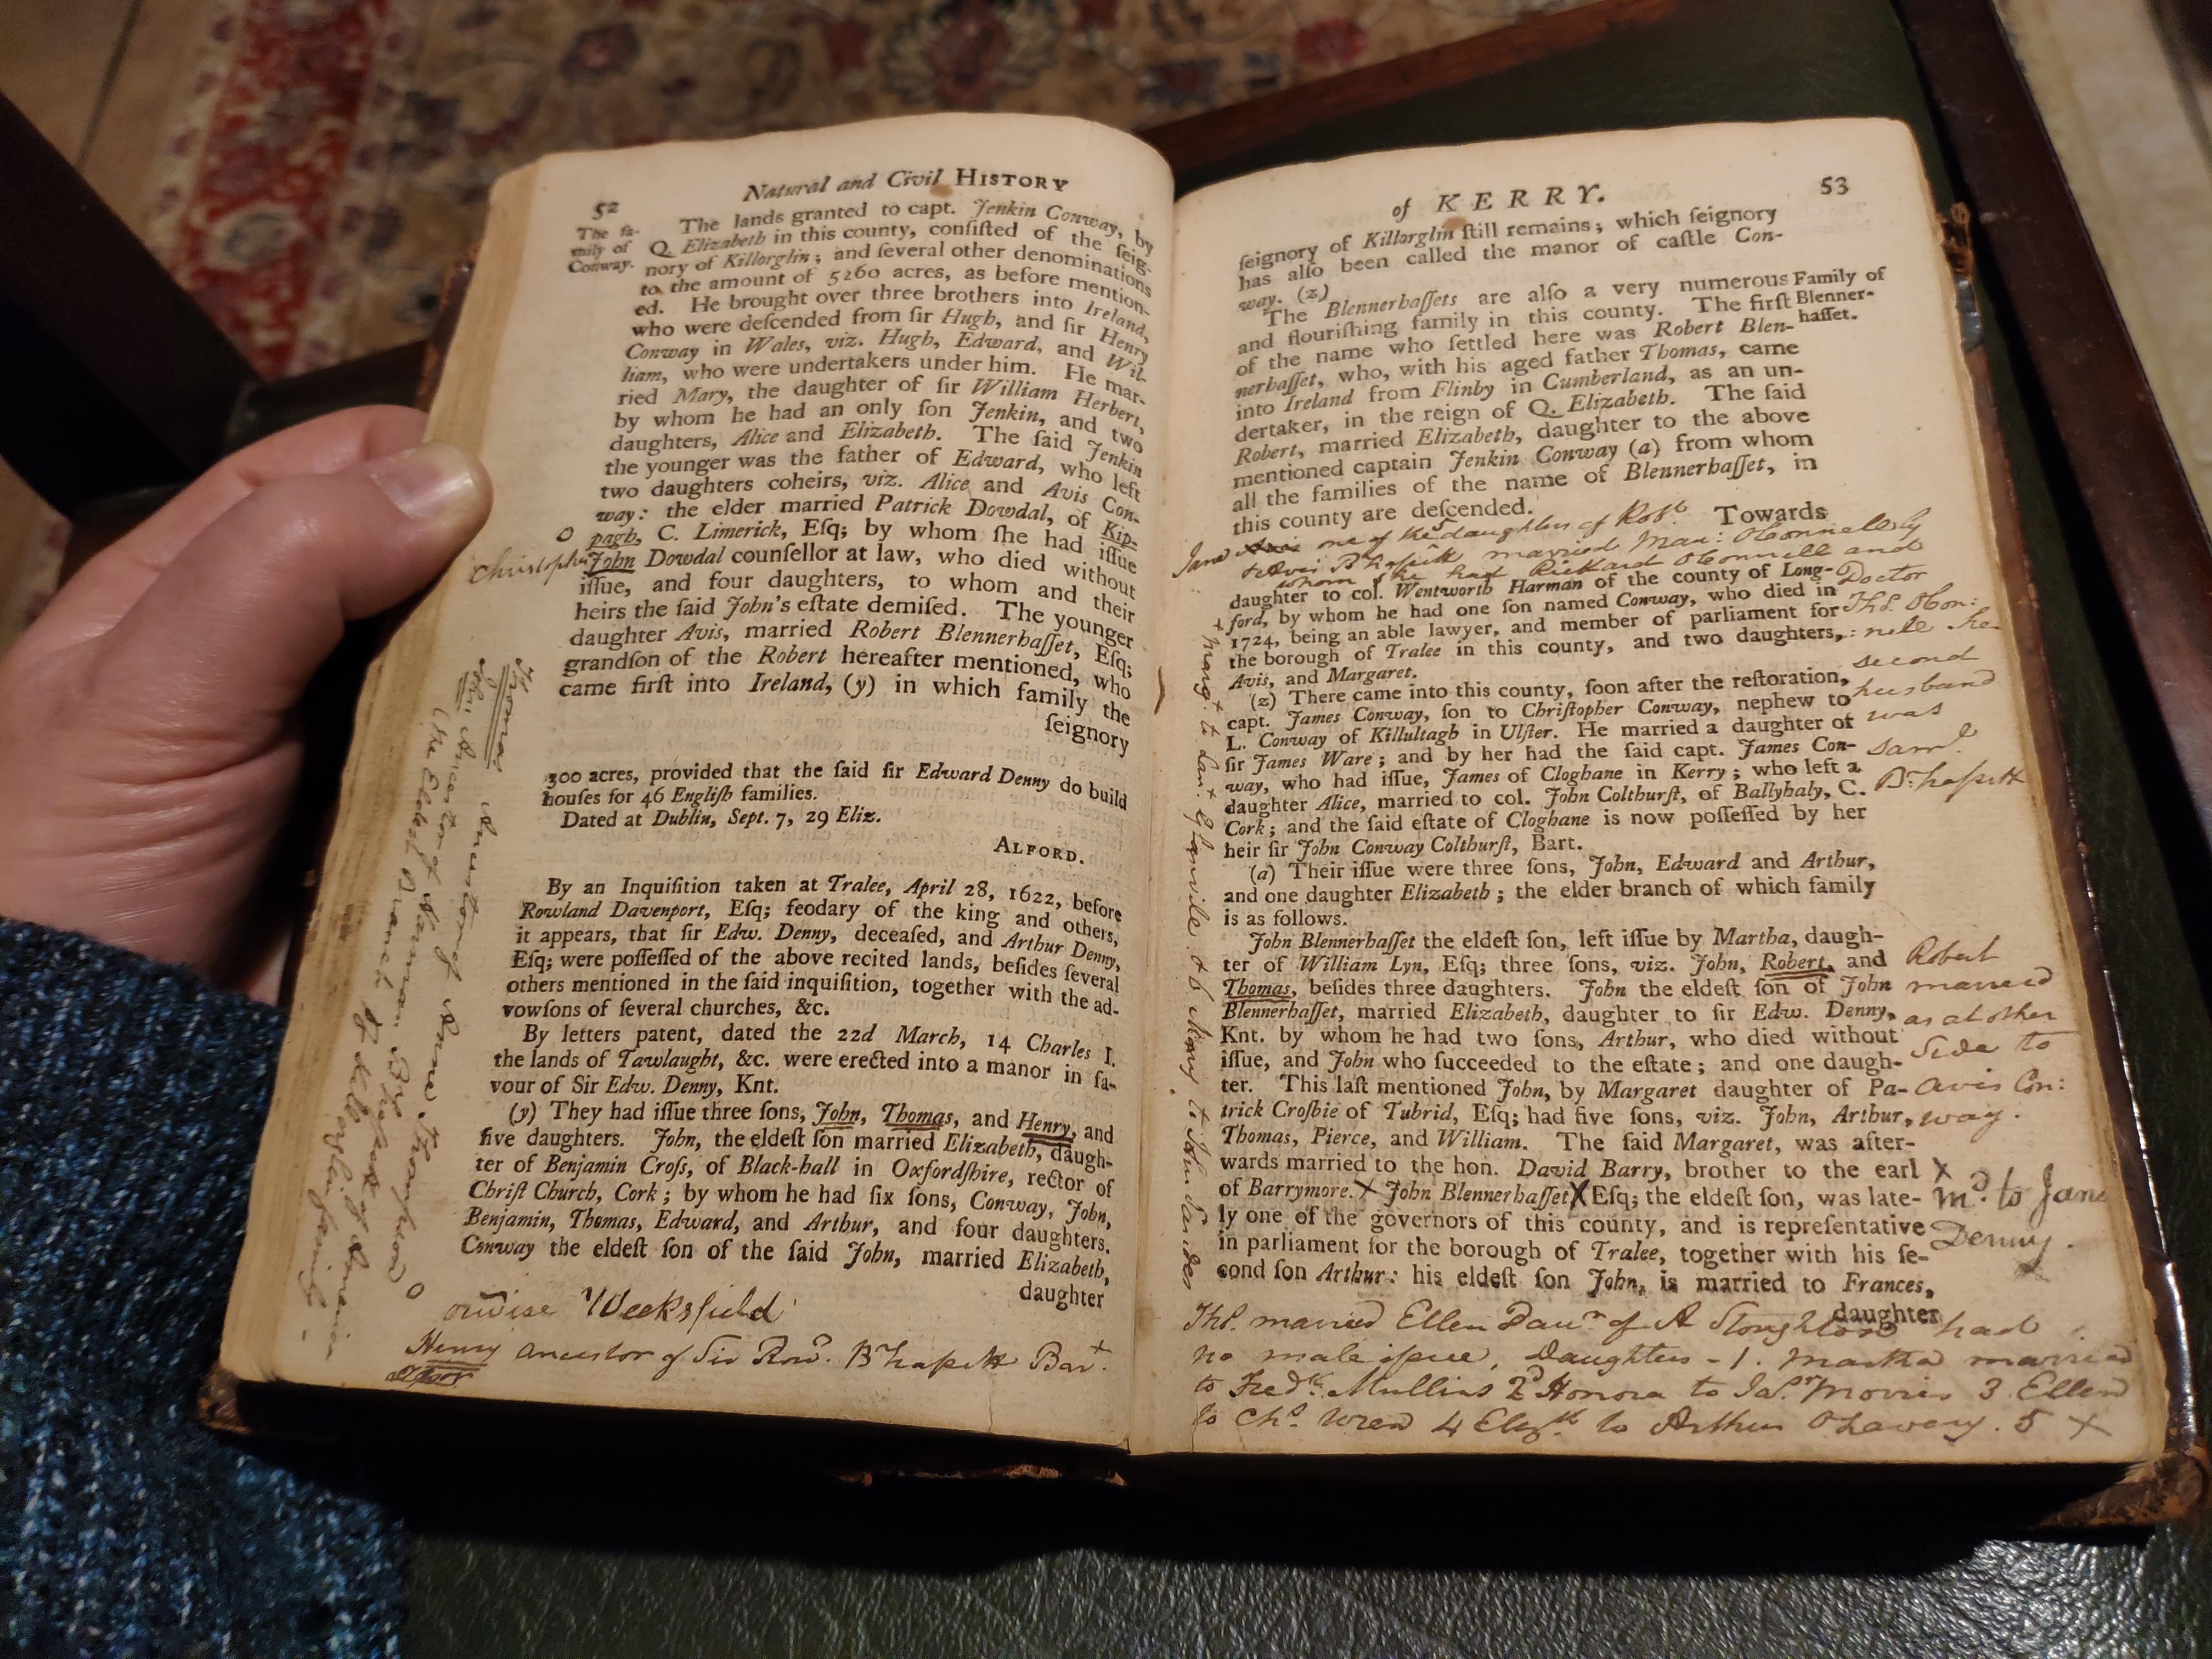 52
Natural and Civil HISTORY
The fa-
mily of
Conway.
The lands granted to capt. Jenkin Conway, by
Q. Elizabeth in this county, conſiſted of the ſeig-
nory of Killorglin; and ſeveral other denominations
to the amount of 5260 acres, as before mention-
ed. He brought over three brothers into Ireland,
who were deſcended from ſir Hugh, and ſir Henry
Conway in Wales, viz. Hugh, Edward, and Wil-
liam, who were undertakers under him. He mar-
ried Mary, the daughter of ſir William Herbert,
by whom he had an only ſon Jenkin, and two
daughters, Alice and Elizabeth. The ſaid Jenkin
the younger was the father of Edward, who left
two daughters coheirs, viz. Alice and Avis Con-
way: the elder married Patrick Dowdal, of Kip-
o pagh, C. Limerick, Eſq; by whom ſhe had iſſue
Christopher John Dowdal counſellor at law, who died without
iſſue, and four daughters, to whom and their
heirs the ſaid John's eſtate demiſed. The younger
daughter Avis, married Robert Blennerhaſſet, Eſq;
grandſon of the Robert hereafter mentioned, who
came firſt into Ireland, (y) in which family the
ſeignory
300 acres, provided that the ſaid ſir Edward Denny do build
houſes for 46 Engliſh families.
Dated at Dublin, Sept. 7, 29 Eliz.
ALFORD.
By an Inquiſition taken at Tralee, April 28, 1622, before
Rowland Davenport, Eſq; feodary of the king and others,
it appears, that ſir Edw. Denny, deceaſed, and Arthur Denny,
Eſq; were poſſeſſed of the above recited lands, beſides ſeveral
others mentioned in the ſaid inquiſition, together with the ad-
vowſons of ſeveral churches, &c.
By letters patent, dated the 22d March, 14 Charles I.
the lands of Tawlaught, &c. were erected into a manor in fa-
vour of Sir Edw. Denny, Knt.
(y) They had iſſue three ſons, John, Thomas, and Henry, and
five daughters. John, the eldeſt ſon married Elizabeth, daugh-
ter of Benjamin Croſs, of Black-hall in Oxfordſhire, rector of
Chriſt Church, Cork; by whom he had ſix ſons, Conway, John,
Benjamin, Thomas, Edward, and Arthur, and four daughters.
Conway the eldeſt ſon of the ſaid John, married Elizabeth,
daughter
Thomas Ancestor of
John Ancestor of
the Eldest Branch of Killorglin family
o
Weeksfield
Henry ancestor of Sir Row.d B'hassett Bar.t
of KERRY.
53
ſeignory of Killorglin ſtill remains; which ſeignory
has alſo been called the manor of caſtle Con-
way. (z)
The Blennerhaſſets are alſo a very numerous
and flouriſhing family in this county. The firſt
of the name who ſettled here was Robert Blen-
nerhaſſet, who, with his aged father Thomas, came
into Ireland from Flinby in Cumberland, as an un-
dertaker, in the reign of Q. Elizabeth. The ſaid
Robert, married Elizabeth, daughter to the above
mentioned captain Jenkin Conway (a) from whom
all the families of the name of Blennerhaſſet, in
this county are deſcended.
Family of
Blenner-
haſſet.
Towards
Jane one of the 5 daughters of Rob.t
& Avis B'hassett married Mau: OConnell by
whom she had Rickard OConnell and
Doctor
Th.s OCon:
:nell he
second
husband
was
Sam.l
B'hassett
daughter to col. Wentworth Harman of the county of Long-
ford, by whom he had one ſon named Conway, who died in
1724, being an able lawyer, and member of parliament for
the borough of Tralee in this county, and two daughters,
Avis, and Margaret.
(z) There came into this county, ſoon after the reſtoration,
capt. James Conway, ſon to Chriſtopher Conway, nephew to
L. Conway of Killultagh in Ulſter. He married a daughter of
ſir James Ware; and by her had the ſaid capt. James Con-
way, who had iſſue, James of Cloghane in Kerry; who left a
daughter Alice, married to col. John Colthurſt, of Ballyhaly, C.
Cork; and the ſaid eſtate of Cloghane is now poſſeſſed by her
heir ſir John Conway Colthurſt, Bart.
(a) Their iſſue were three ſons, John, Edward and Arthur,
and one daughter Elizabeth; the elder branch of which family
is as follows.
John Blennerhaſſet the eldeſt ſon, left iſſue by Martha, daugh-
ter of William Lyn, Eſq; three ſons, viz. John, Robert, and
Thomas, beſides three daughters. John the eldeſt ſon of John
Blennerhaſſet, married Elizabeth, daughter to ſir Edw. Denny,
Knt. by whom he had two ſons, Arthur, who died without
iſſue, and John who ſucceeded to the eſtate; and one daugh-
ter. This laſt mentioned John, by Margaret daughter of Pa-
trick Croſbie of Tubrid, Eſq; had five ſons, viz. John, Arthur,
Thomas, Pierce, and William. The ſaid Margaret, was after-
wards married to the hon. David Barry, brother to the earl
of Barrymore. X John Blennerhaſſet X Eſq; the eldeſt ſon, was late-
ly one of the governors of this county, and is repreſentative
in parliament for the borough of Tralee, together with his ſe-
cond ſon Arthur: his eldeſt ſon John, is married to Frances,
daughter
Robert
married
as at other
Side to
Avis Con:
way.
X
m.d to Jane
Denny.
x Marg.t to Glanville & 6 Mary to John Sandes
Th.s married Ellen Dau.r of A Stoughton had
no male issue, Daughters - 1. Martha married
to Fred.k Mullins 2.d Honora to Ja.s Morris 3 Ellen
to Ch.s Wren 4 Eliz.th to Arthur OLavery. 5 X